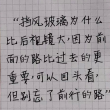 “挡风玻璃为什么
比后视镜大,因为前
面的路比过去的更
重要,可以回头看,
但别忘了前行的路”